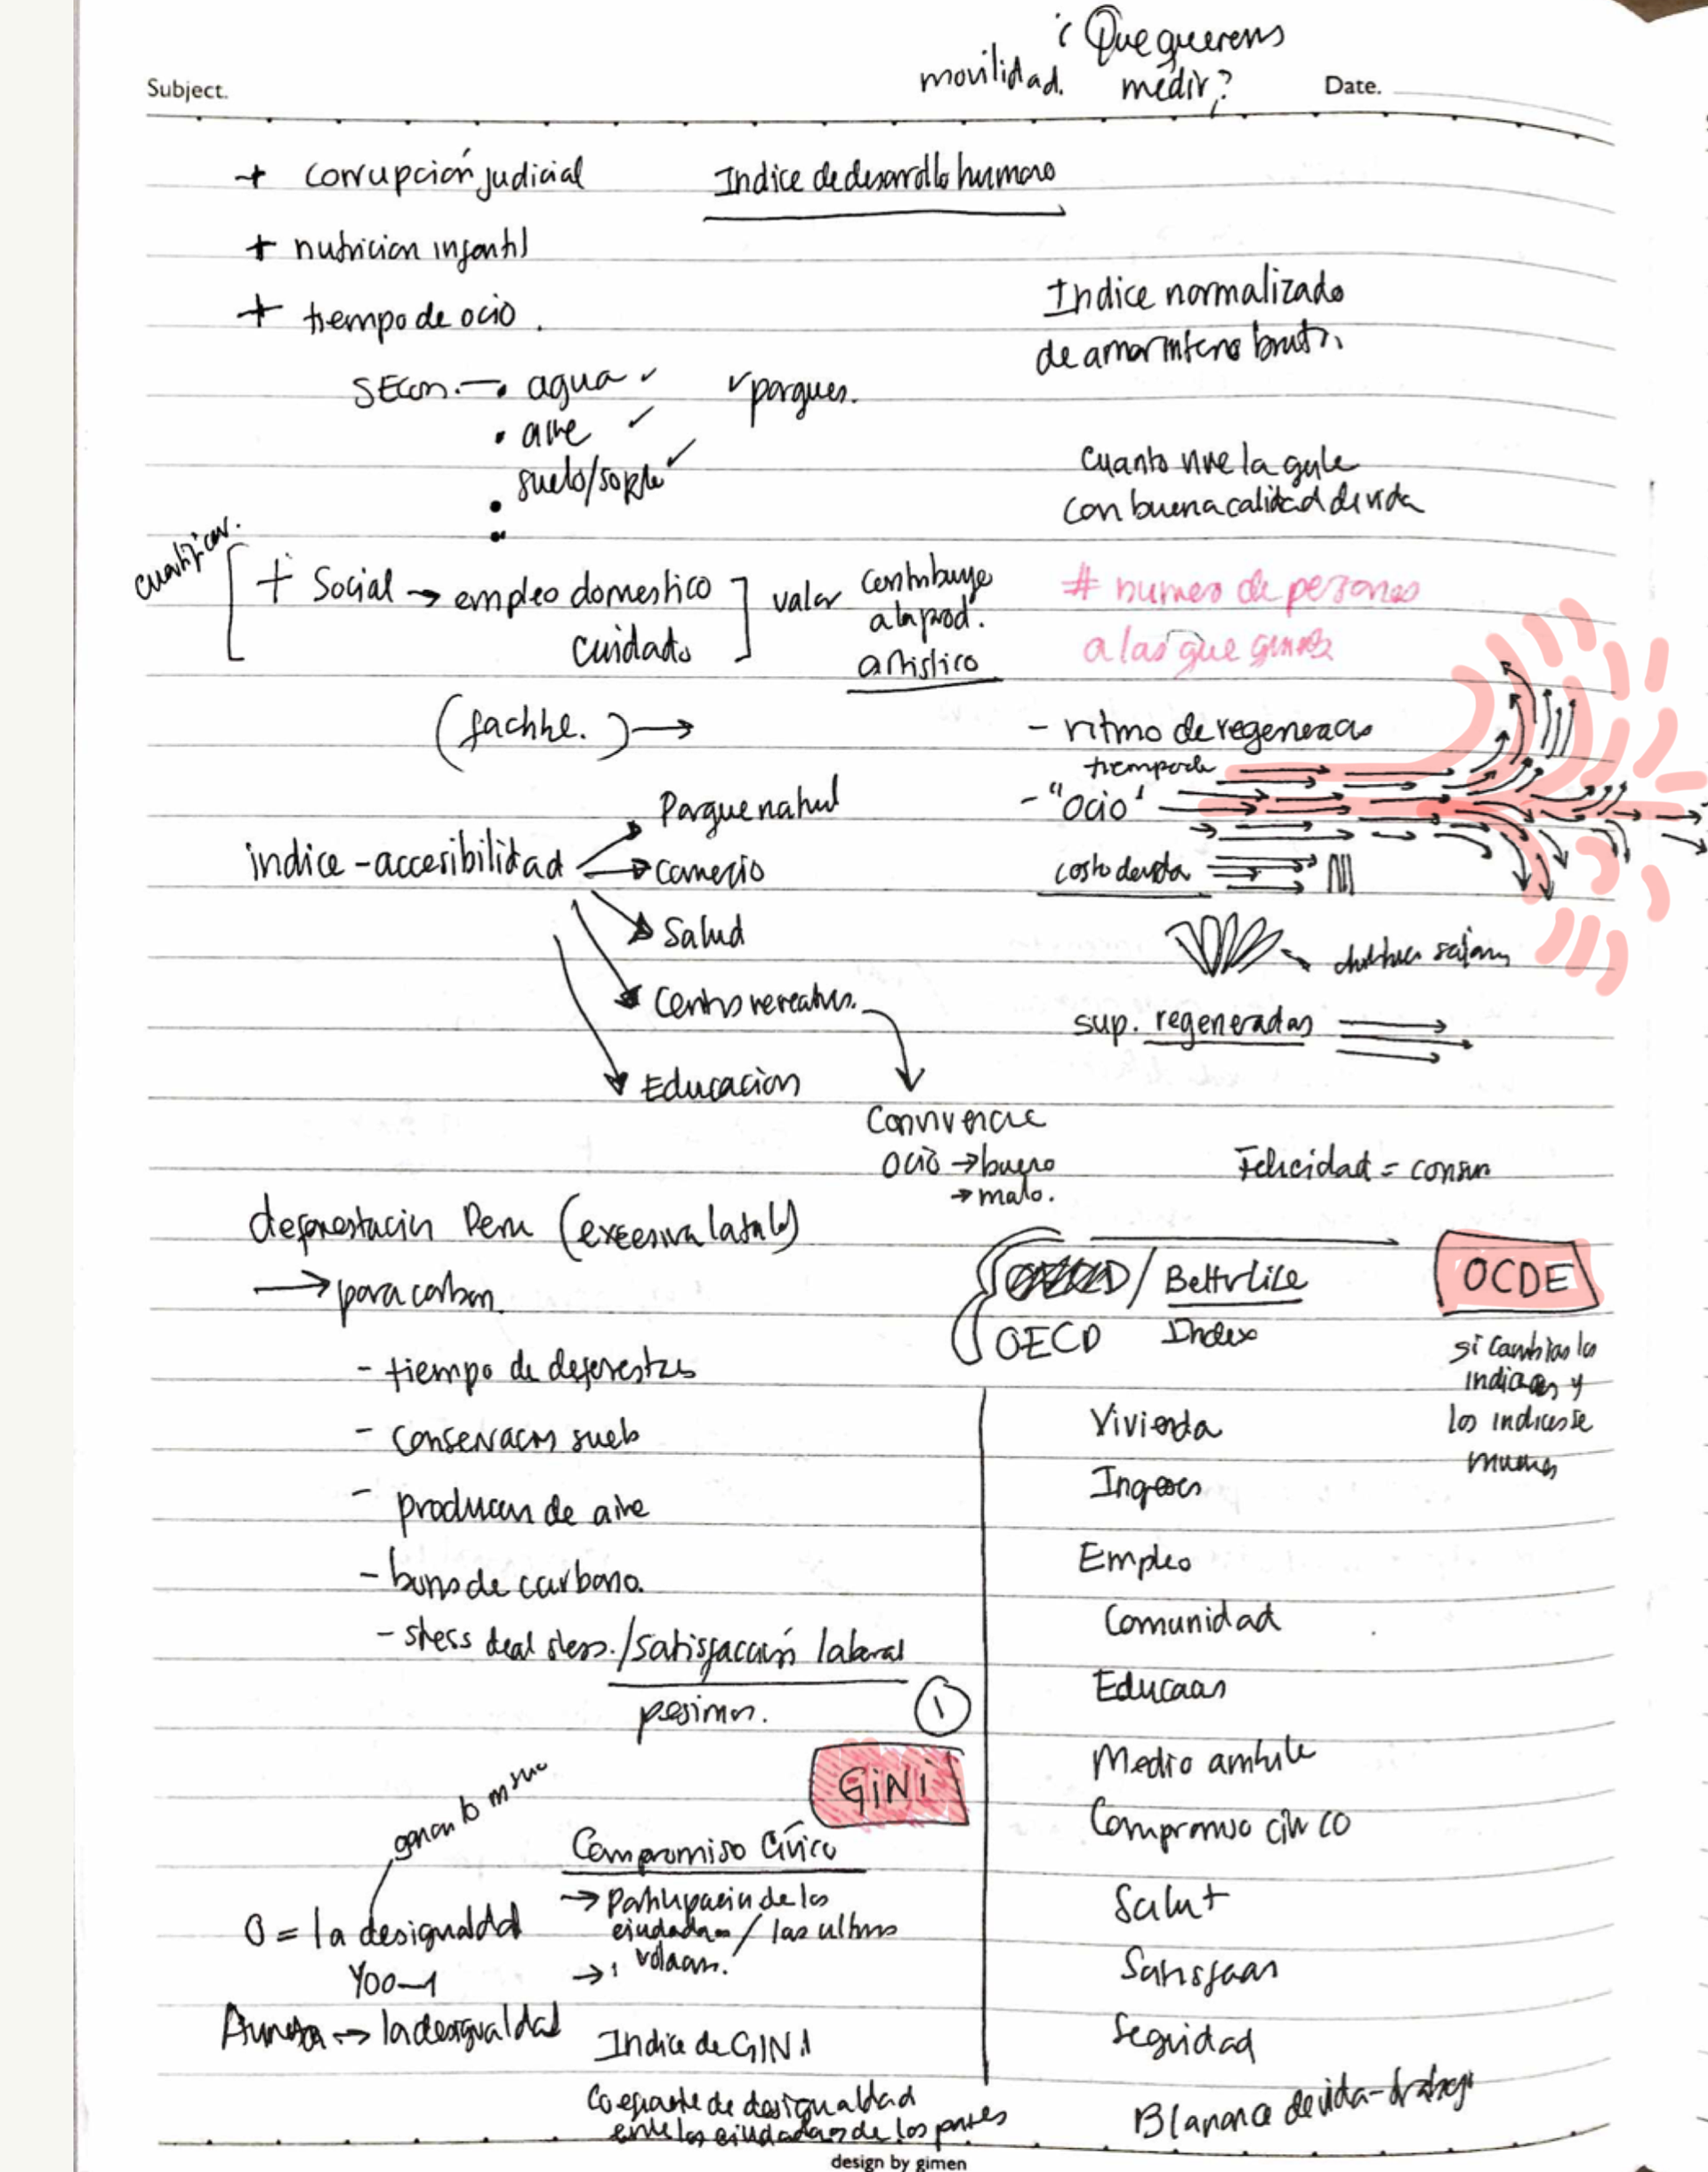 ¿Que queremos
movilidad. medir?
Subject. Date.
+ corrupción judicial
Indice de desarrollo humano
+ nutricion infantil
+ tiempo de ocio.
Indice normalizado
de amor interno bruto.
SEcon. → • agua ✓ ✓ parques.
• aire ✓
• suelo/ ✓
•
Cuanto vive la gente
con buena calidad de vida
cuantificar.
+ Social → empleo domestico
cuidado
valor contribuye
a la prod.
artistico
# numero de personas
a las que
( ) →
- ritmo de regeneracion
tiempo de
- "ocio"
costo de vida
indice - accesibilidad
Parque natural
Comercio
Salud
Centros recreativos.
Educacion
sup. regeneradas
Convivencia
ocio → bueno
→ malo.
Felicidad =
deforestacion Peru (excesiva )
→ para carbon.
- tiempo de deforestacion
- conservacion suelo
- produccion de aire
- bonos de carbono.
- stress /satisfacción laboral
pesimos.
/ Better Life
OECD Index
OCDE
si cambias los
indicadores y
los indices se
mueven
Vivienda
Ingresos
Empleo
Comunidad
Educacion
Medio ambiente
Compromiso civico
Salut
Satisfaccion
Seguridad
Blanance de vida-trabajo
1
GiNi
ganan lo mismo
Compromiso Cívico
→ Participacion de los
ciudadanos / las ultimas
→ votacion.
0 = la desigualdad
Y00-1
Aumenta → la desigualdad
Indice de GINI
Coeficiente de desigualdad
entre los ciudadanos de los paises
design by gimen